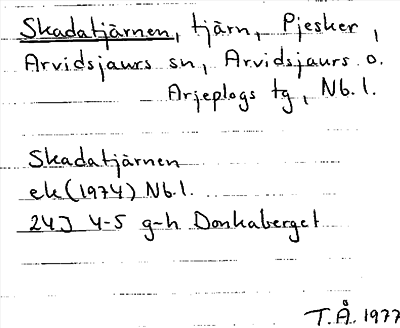 Skadatjärnen, tjärn, Pjesker,
Arvidsjaurs sn, Arvidsjaurs o.
Arjeplogs tg, Nb.l.
Skadatjärnen
ek(1974) Nb.l.
24J 4-5 g-h Donkaberget
T.Å. 1977